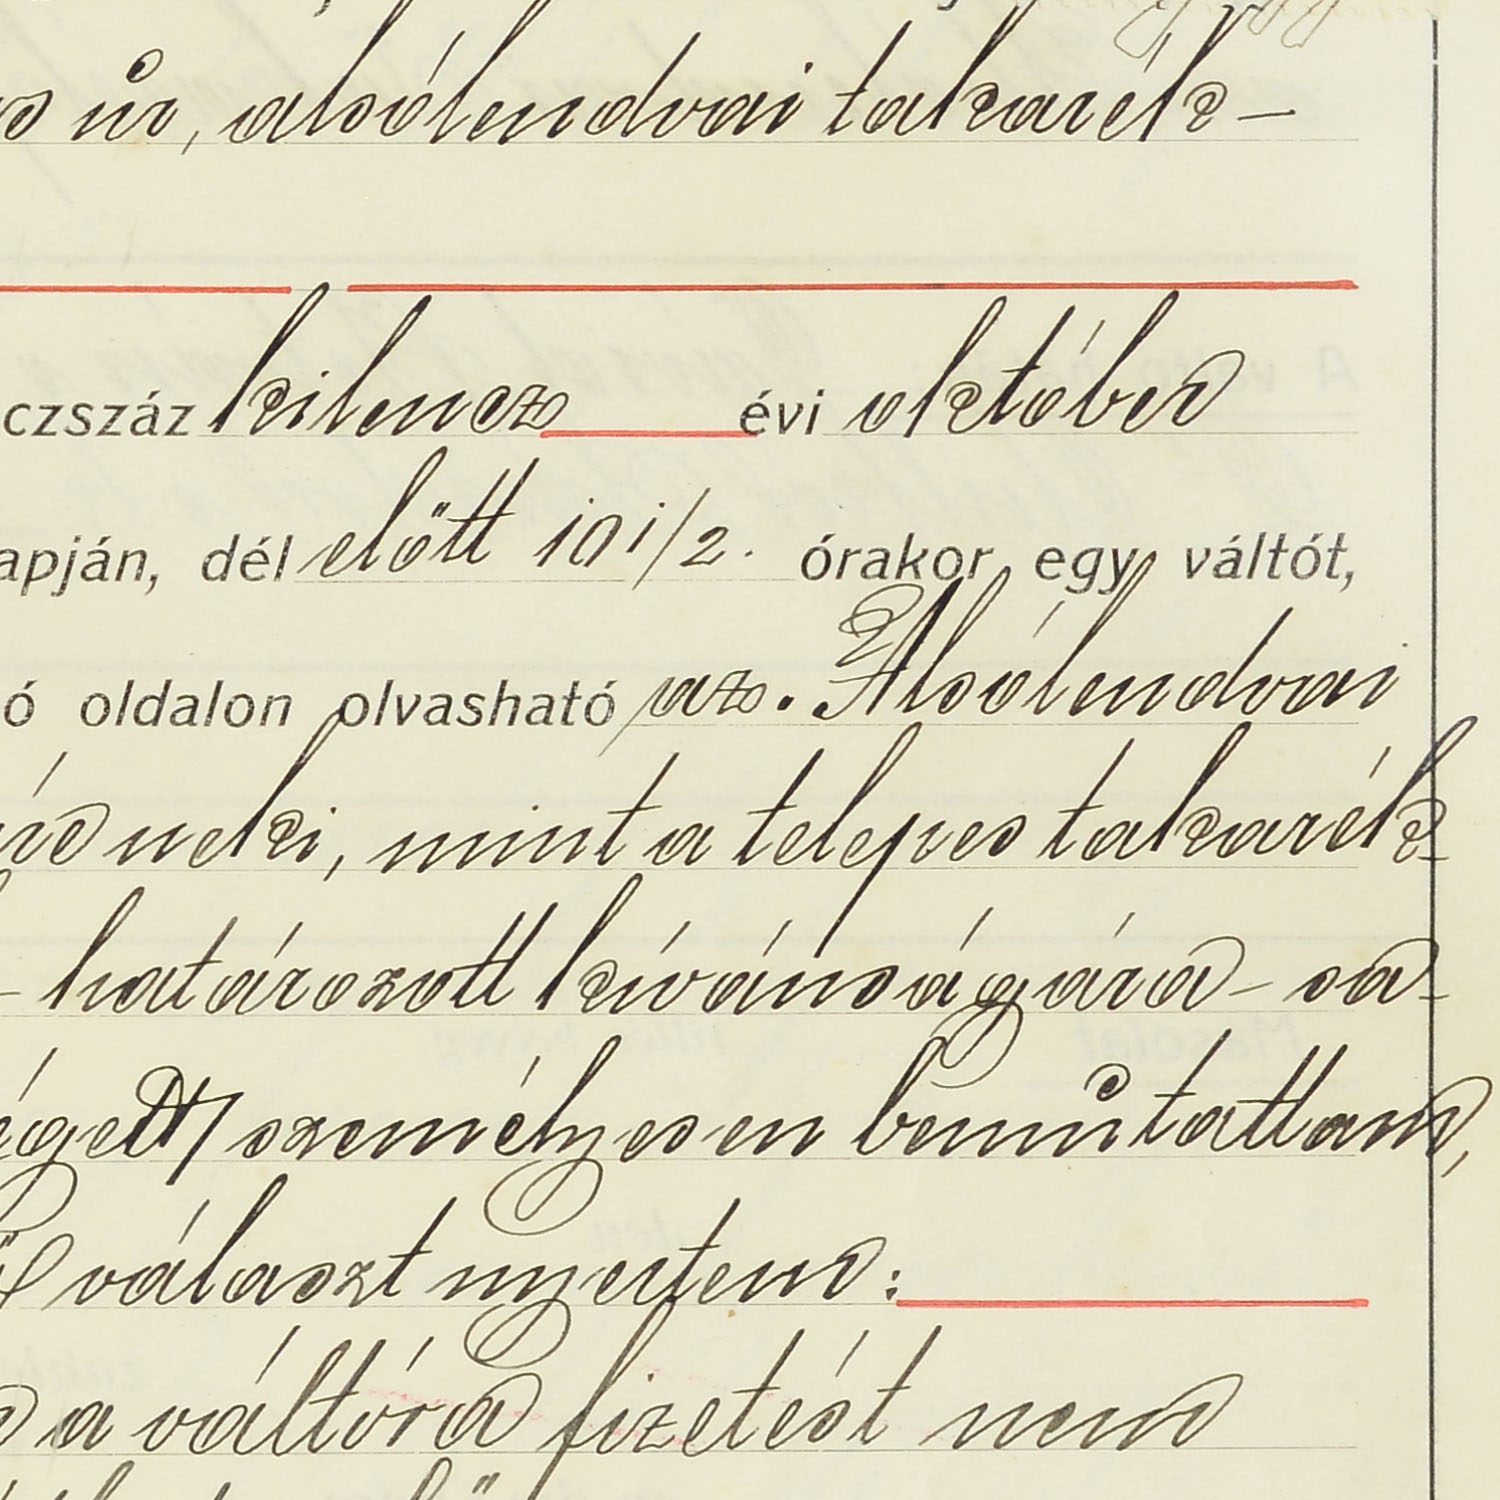 úr, alsólendvai takarék-
czszáz kilencz évi október
apján, dél előtt 10 1/2. órakor egy váltót,
ó oldalon olvasható az. Alsólendvai
neki, mint a telepes takarék-
- határozott kívánságára - sa-
égett/ személyesen bemútattam,
választ nyertem:
a váltóra fizetést nem